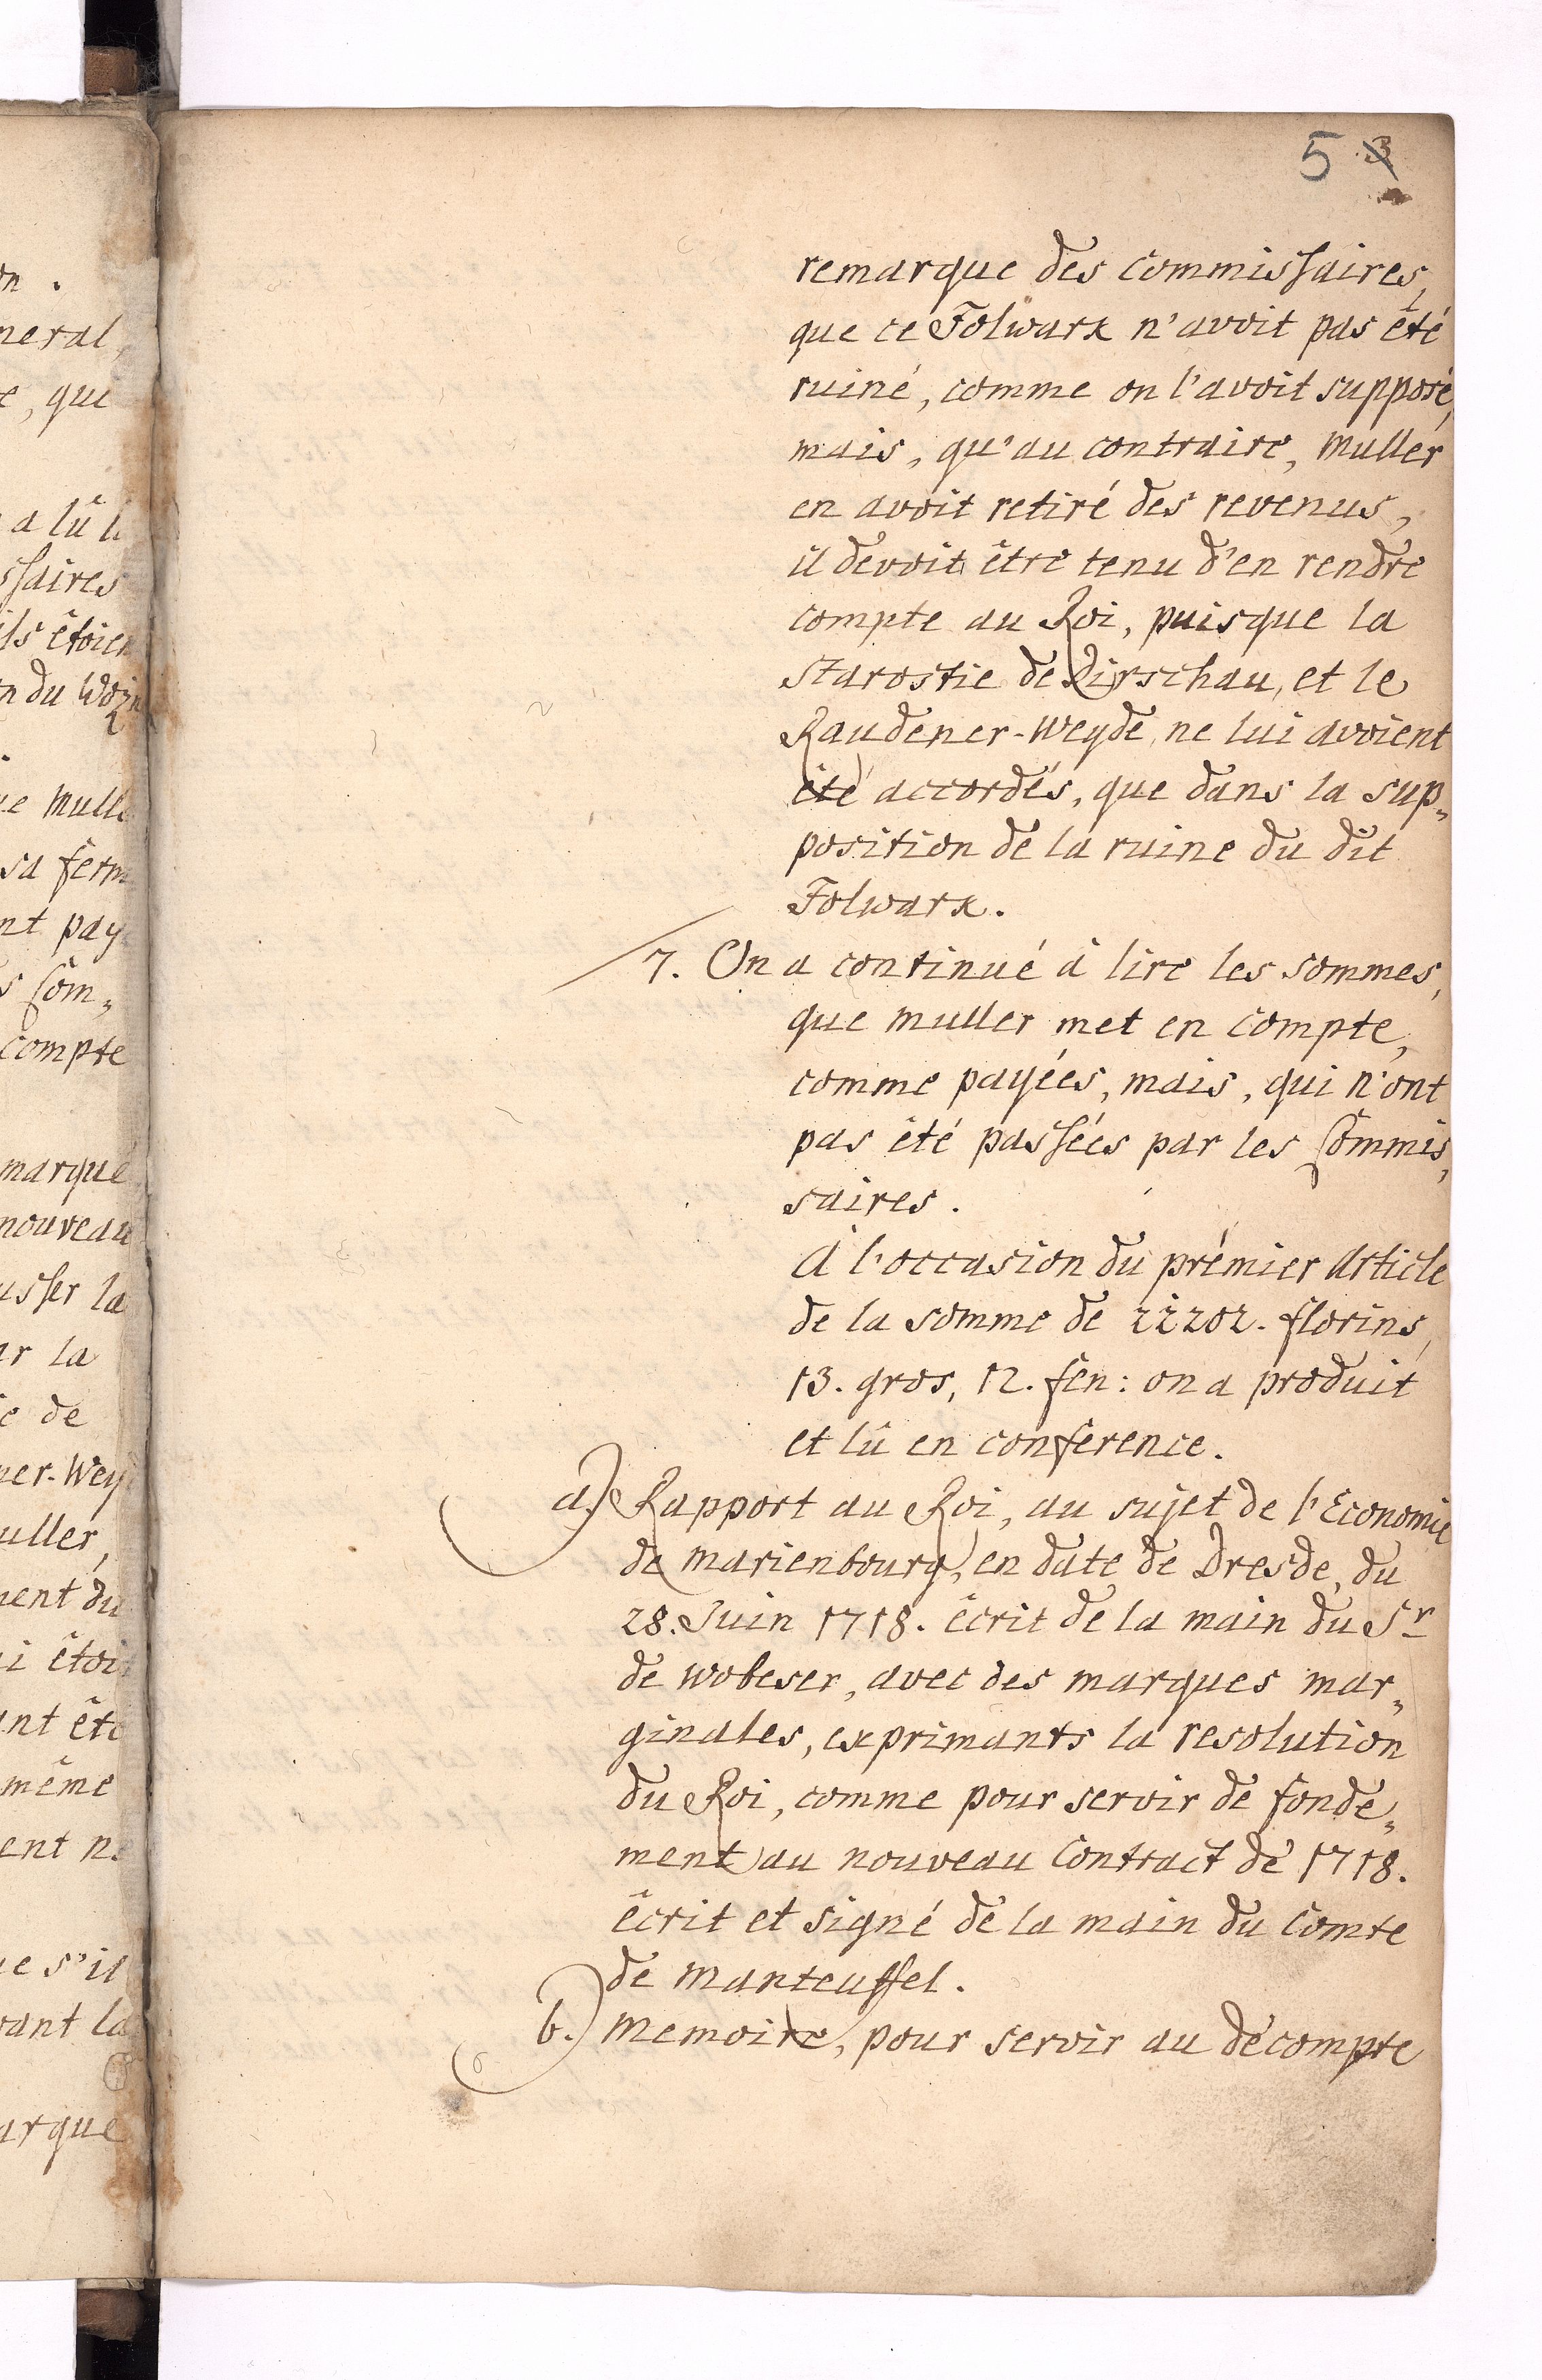 on.
neral,
e, qui
a lû l
ssaires
ils êtoien
n du Woy
e Mull
sa ferm
nt pay
s Com„
compte
marqué
nouveau
usser la
ur la
e de
ner-Wey
uller,
ment du
i êtoi
ant êté
même
ent n.
e s'il
vant la
arque
5 3
remarque des commissaires,
que ce Folwark n'avoit pas été
ruiné, comme on l'avoit supposé,
mais, qu'au contraire, Muller
en avoit retiré des revenus,
il devoit être tenu d'en rendre
compte au Roi, puisque la
Starostie de Dirschau, et le
Raudener-Weyde, ne lui avoient
êté accordés, que dans la sup„
position de la ruine du dit
Folwark.
7. On a continué à lire les sommes,
que Muller met en compte,
comme payées, mais, qui n'ont
pas êté passées par les Commis„
saires.
A l'occasion du prémier Article
de la somme de 22202. florins,
13. gros, 12. fen: on a produit
et lû en conference.
a.) Rapport au Roi, au sujet de l'Economie
de Marienbourg, en date de Dresde, du
28. Juin 1718. êcrit de la main du Sr
de Wobeser, avec des marques mar„
ginales, exprimants la resolution
du Roi, comme pour servir de fonde„
ment au nouveau Contract de 1718.
êcrit et signé de la main du Comte
de Manteuffel.
b.) Memoire, pour servir au décompte